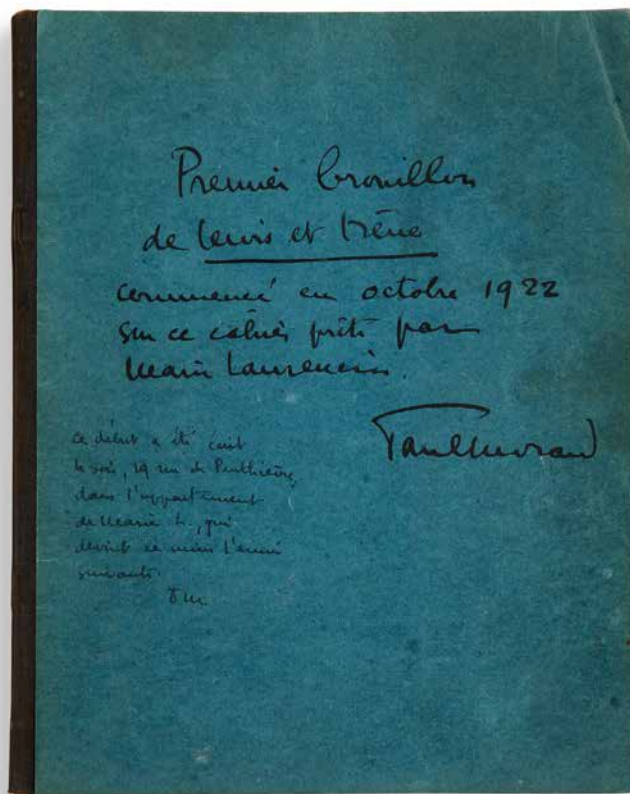 Premier brouillon
de Lewis et Irène
commencé en octobre 1922
sur ce cahier prêté par
Marie Laurencin.
Paul Morand
ce début a été écrit
le soir, 19 rue de Penthièvre,
dans l'appartement
de Marie L., qui
devint le mien l'année
suivante.
PM